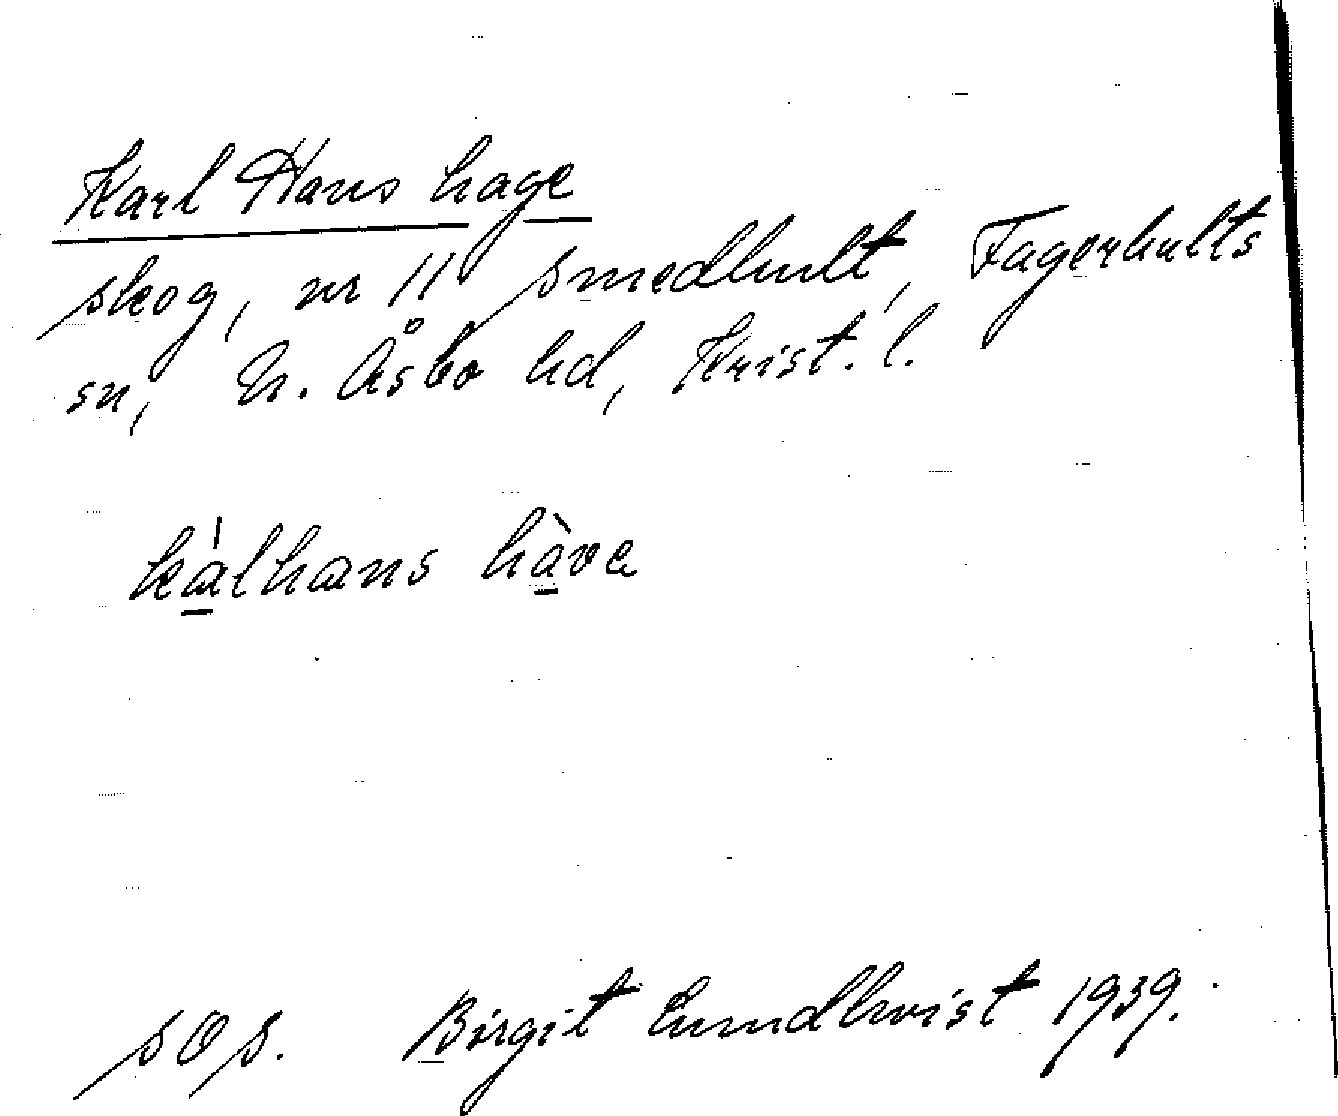 Karl Hans hage
skog, nr 11 Smedhult, Fagerhults
sn, N. Åsbo hd, Krist. l.
ka̱̍lhans hà̱va
SOS. Birgit Lundkvist 1939.